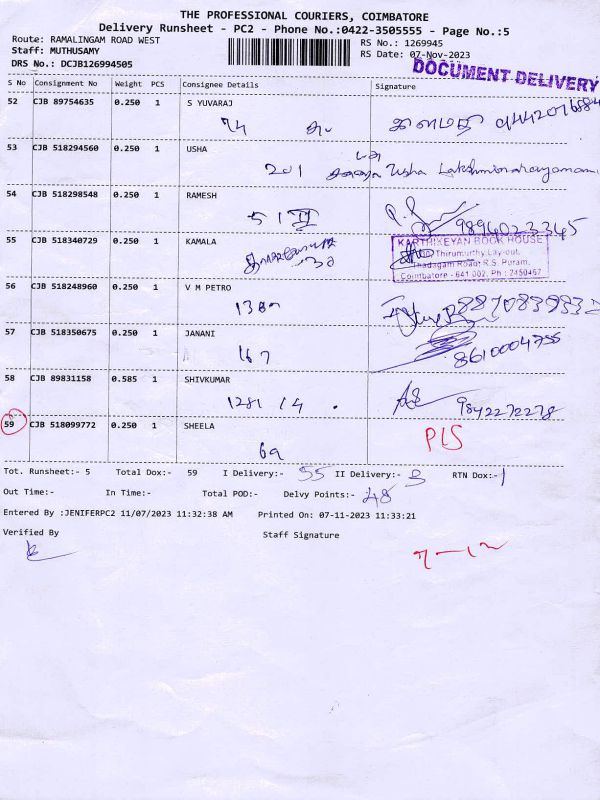 THE PROFESSIONAL COURIERS, COIMBATORE
Delivery Runsheet - PC2 - Phone No.:0422-3505555 - Page No.:5
Route: RAMALINGAM ROAD WEST
RS No.: 1269945
Staff: MUTHUSAMY
RS Date: 07-Nov-2023
DRS No.: DCJB126994505
DOCUMENT DELIVERY
S No Consignment No Weight PCS Consignee Details Signature
52 CJB 89754635 0.250 1 S YUVARAJ
74
53 CJB 518294560 1 0.250 1 USHA
201 Usha Lakshminarayanan
54 CJB 518298548 0.250 1 RAMESH
51 II 9894023345
55 CJB 518340729 0.250 1 KAMALA
KARTHIKEYAN BOOK HOUSE
Thirumurthy Lay-out,
Thadagam Road, R.S. Puram,
Coimbatore - 641 002. Ph : 2450467
56 CJB 518248960 0.250 1 V M PETRO
138
57 CJB 518350675 0.250 1 JANANI
167 8610004755
58 CJB 89831158 0.585 1 SHIVKUMAR
1281 / 4 . 9842272278
59 CJB 518099772 0.250 1 SHEELA
69 PLS
Tot. Runsheet:- 5 Total Dox:- 59 I Delivery:- 55 II Delivery:- 3 RTN Dox:- 1
Out Time:- In Time:- Total POD:- Delvy Points:- 48
Entered By :JENIFERPC2 11/07/2023 11:32:38 AM Printed On: 07-11-2023 11:33:21
Verified By Staff Signature
7-12